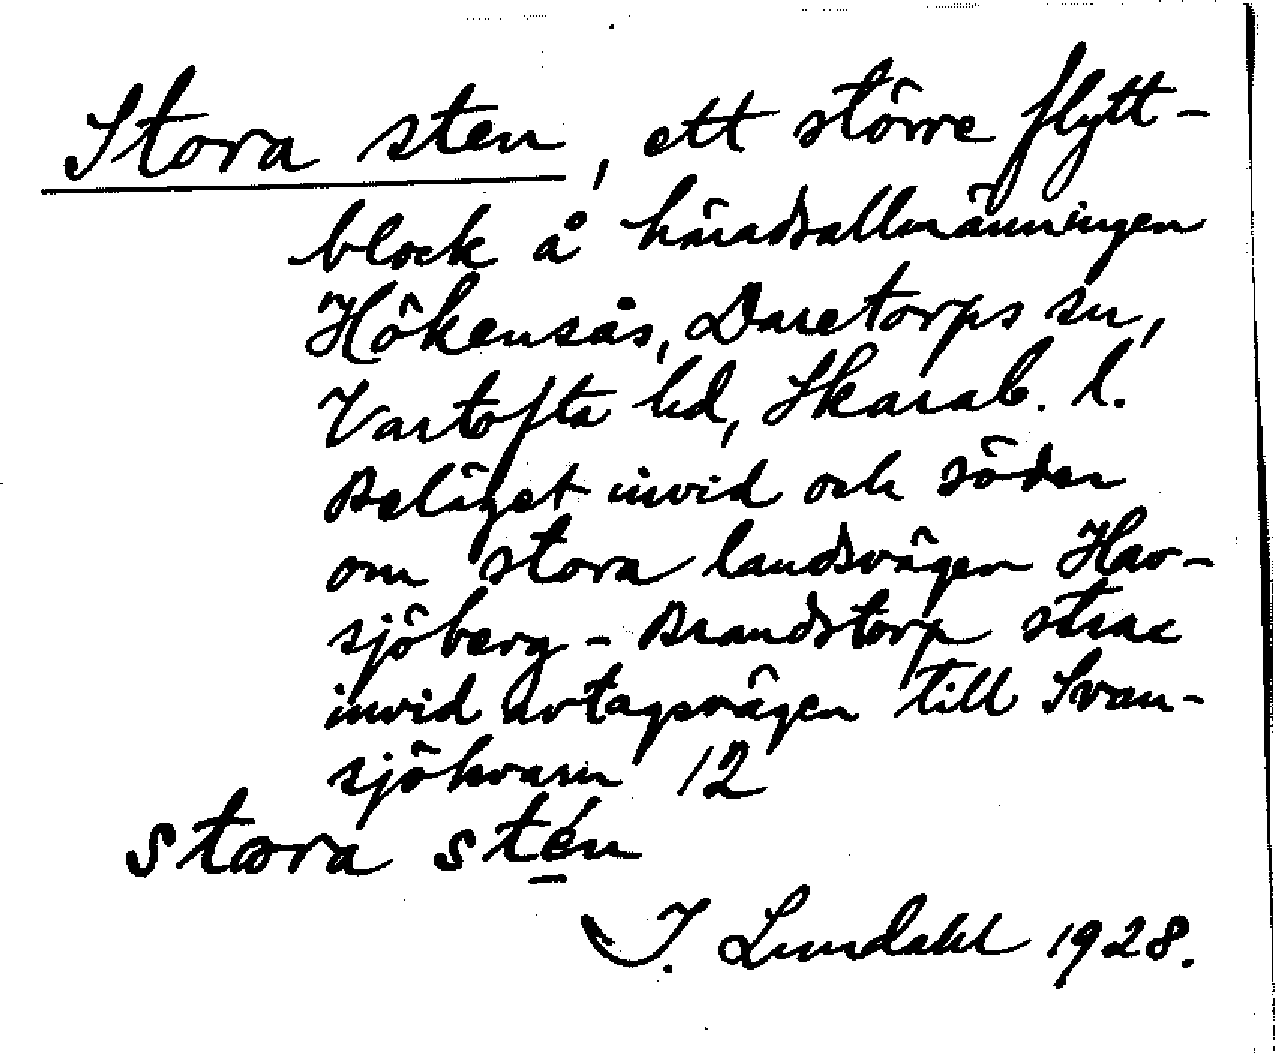 Stora sten, ett större flytt-
block å häradsallmänningen
Hökensås, Daretorps sn,
Vartofta hd, Skarab. l.
Beläget invid och söder
om stora landsvägen Hav-
sjöberg - Brandstorp strax
invid avtagsvägen till Svan-
sjökvarn 12
stora stén
I. Lundahl 1928.